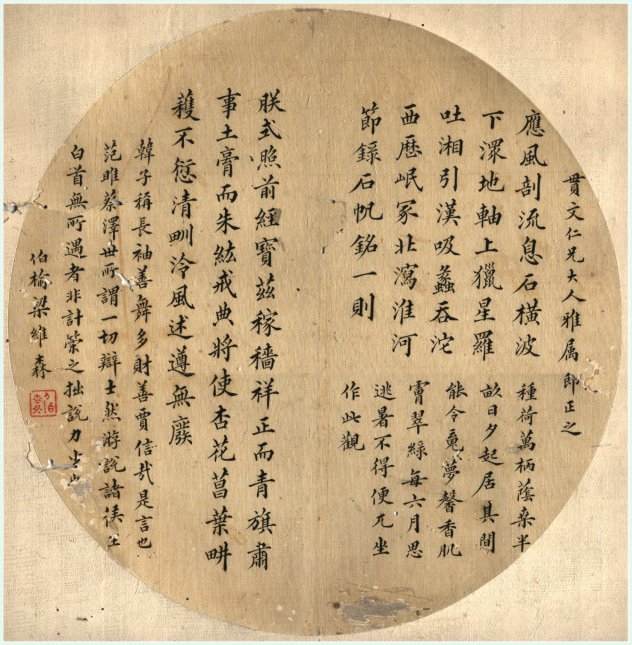 貫文仁兄大人雅属即正之
應風剖流息石橫波
下潀地軸上獵星羅
吐湘引漢吸蠡吞沱
西歷岷冢北瀉淮河
節錄石帆銘一則
種荷萬柄蔭桑半
畝日夕起居其間
能令魂夢馨香肌
膚翠綠每六月思
逃暑不得便兀坐
作此觀
朕式照前經寶茲稼穡祥正而青旗肅
事土膏而朱紘戒典將使杏花菖葉畊
穫不愆清甽泠風述遵無廢
韓子稱長袖善舞多財善賈信哉是言也
范雎蔡澤世所謂一切辯士然游說諸侯至
白首無所遇者非計策之拙說力少也
伯榆梁維森